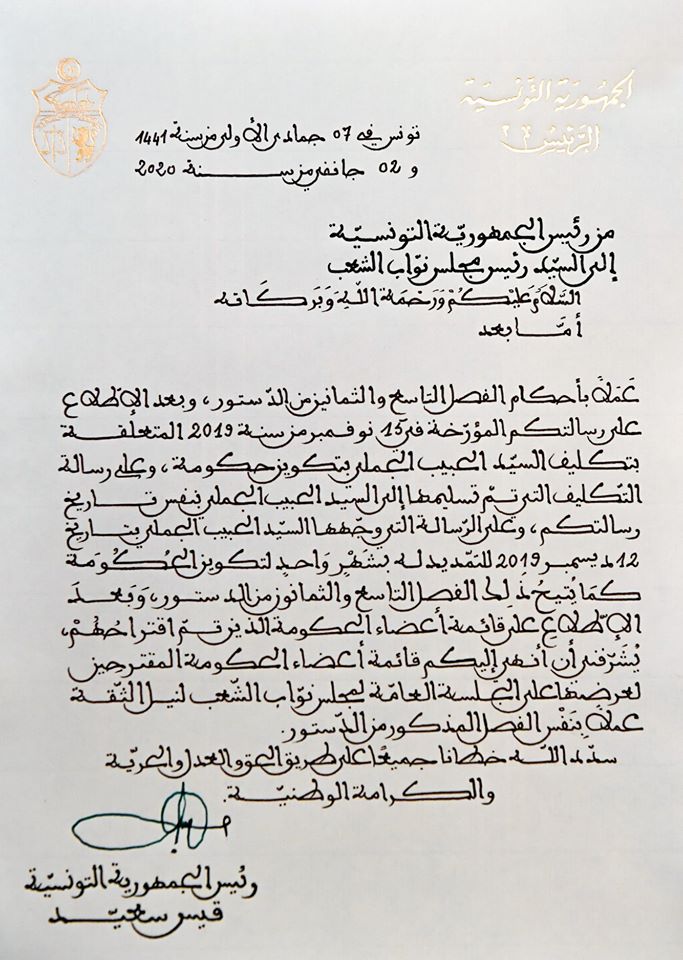 الجمهورية التونسية
الرئيس
تونس في 07 جمادى الأولى من سنة 1441
و 02 جانفي من سنة 2020
من رئيس الجمهوريّة التونسيّة
إلى السيّد رئيس مجلس نوّاب الشعب
السَّلَامُ عَلَيْكُمْ وَرَحْمَةُ اللَّهِ وَبَرَكَاتُه
أمَّا بعد
عَمَلًا بأحكام الفصل التاسع والثمانين من الدّستور، وبعد الإطّلاع
على رسالتكم المؤرّخة في 15 نوفمبر من سنة 2019 المتعلقة
بتكليف السيّد الحبيب الجملي بتكوين حكومة، وعلى رسالة
التكليف التي تمّ تسليمها إلى السيّد الحبيب الجملي بنفس تاريخ
رسالتكم، وعلى الرّسالة التي وجّهها السيّد الحبيب الجملي بتاريخ
12 ديسمبر 2019 للتمديد له بشَهْرٍ وَاحدٍ لتكوين الحُكُومَة
كمَا يُتيحُ ذلِكَ الفصل التاسع والثمانون من الدستور، وَبَعدَ
الإطّلاع على قائمة أعضاء الحكومة الذين تمّ اقتراحُهُمْ،
يُشَرّفني أن أنهي إليكم قائمة أعضاء الحكومة المقترحين
لعرضها على الجلسة العامّة لمجلس نوّاب الشّعب لنيل الثّقة
عملا بِنَفْس الفصل المذكور من الدّستور.
سدّد اللّه خطانا جميعًا على طريق الحق والعدل والحريّة
والكرامة الوطنيّة.
رئيس الجمهورية التونسيّة
قيس سعيّد